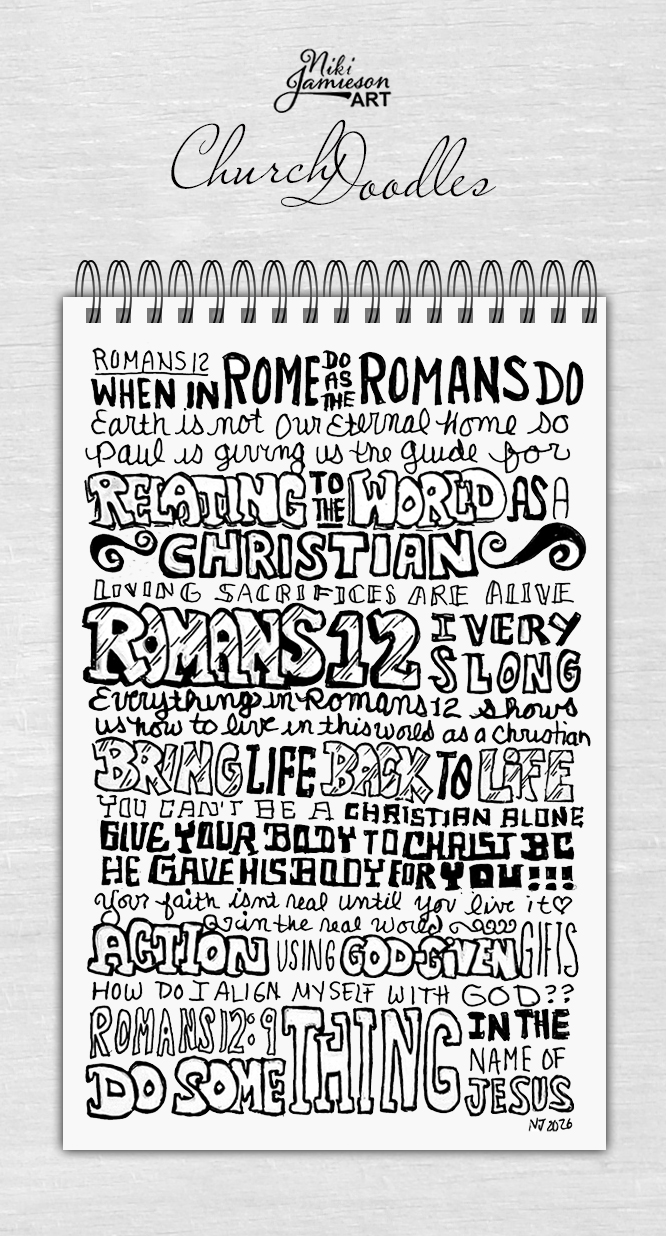 Niki
Jamieson
ART
Church Doodles
ROMANS 12
WHEN IN ROME DO AS THE ROMANS DO
Earth is not our Eternal Home so
Paul is giving us the guide for
RELATING TO THE WORLD AS A
CHRISTIAN
LIVING SACRIFICES ARE ALIVE
ROMANS 12 IS VERY LONG
Everything in Romans 12 shows
us how to live in this world as a Christian
BRING LIFE BACK TO LIFE
YOU CAN'T BE A CHRISTIAN ALONE
GIVE YOUR BODY TO CHRIST BC
HE GAVE HIS BODY FOR YOU!!!
Your faith isnt real until you live it♡
in the real world
ACTION USING GOD-GIVEN GIFTS
HOW DO I ALIGN MYSELF WITH GOD??
ROMANS 12:9
DO SOMETHING IN THE
NAME OF
JESUS
NJ 2026